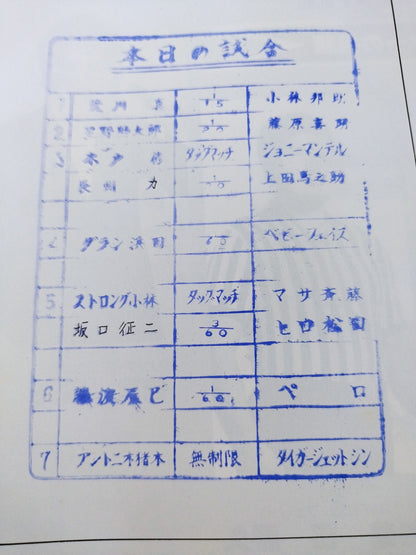 本日の試合
1 1/15 小林邦昭
2 星野勘太郎 1/20 藤原喜明
3 木戸修 タッグマッチ ジョニーマンテル
長州力 上田馬之助
4 グラン浜田 60 ベビーフェイス
5 ストロング小林 タッグマッチ マサ斉藤
坂口征二 3/60 ヒロ松田
6 藤波辰巳 1/60 ペロ
7 アントニオ猪木 無制限 タイガージェットシン